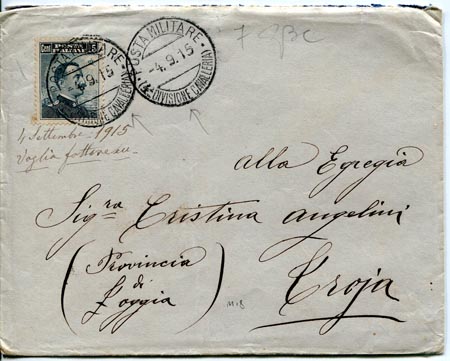 Cent. 15
POSTA MILITARE
-4.9.15
(4ª DIVISIONE CAVALLERIA)
POSTA MILITARE
-4.9.15
(4ª DIVISIONE CAVALLERIA)
4 Settembre 1915
Voglia
Alla Egregia
Sig.ra Cristina Angelini
(Provincia
di
Foggia)
Troja